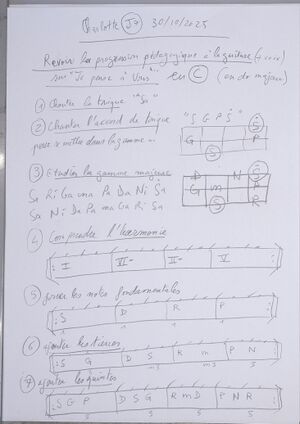 Charlotte Jo 30/10/2025
Revoir la progression pédagogique à la guitare
sur "Je pense à Vous" en C (en do majeur)
① Chanter la tonique "Sa"
② Chanter l'accord de tonique "S G P Ṡ"
pour se mettre dans la gamme...
G P Ṡ
S
③ Etudier la gamme majeure
D N Ṡ
Sa Ri Ga ma Pa Da Ni Ṡa
G m P
Ṡa Ni Da Pa ma Ga Ri Sa
S R
④ Comprendre l'harmonie
I VI- II- V
⑤ jouer les notes fondamentales
S D R P
1 1 1 1
⑥ ajouter les tierces
S G D S R m P N
3 m3 m3 3
⑦ ajouter les quintes
S G P D S G R m D P N R
5 5 5 5